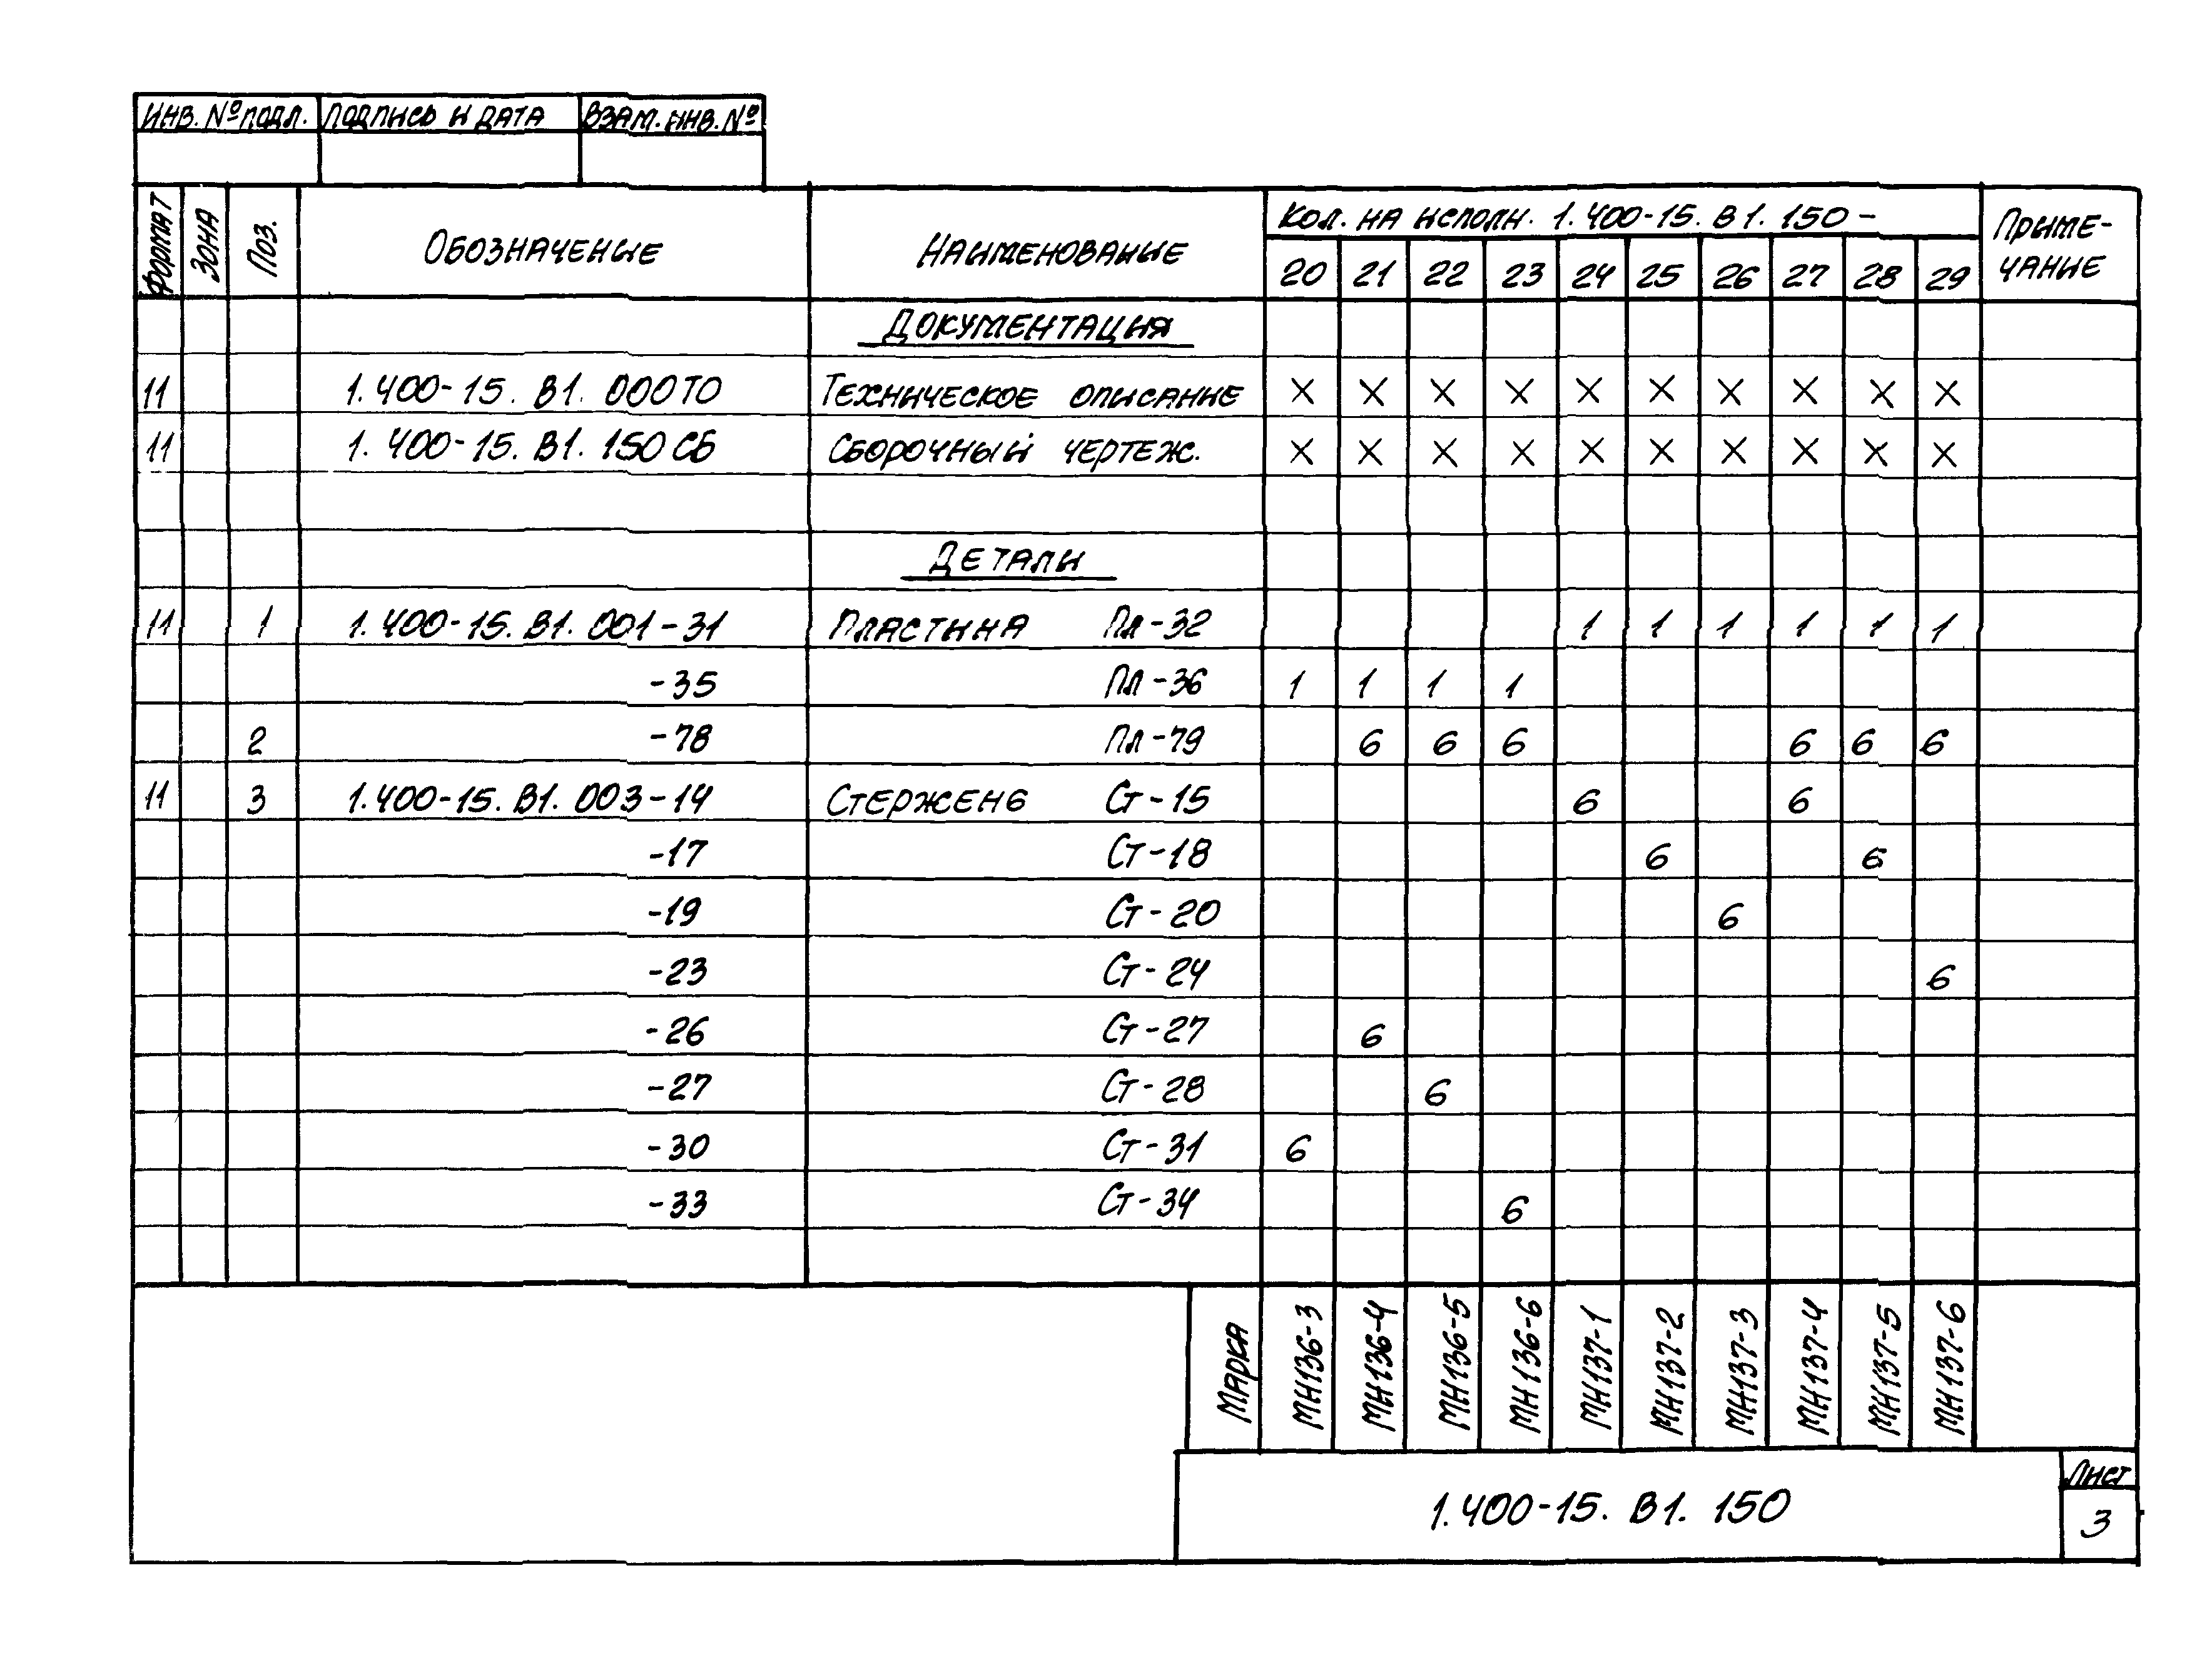 Инв. № подл. Подпись и дата Взам. инв. №
Формат Зона Поз. Обозначение Наименование Кол. на исполн. 1.400-15.В1.150- Примечание
20 21 22 23 24 25 26 27 28 29
Документация
11 1.400-15.В1.000ТО Техническое описание × × × × × × × × × ×
11 1.400-15.В1.150СБ Сборочный чертеж. × × × × × × × × × ×
Детали
11 1 1.400-15.В1.001-31 Пластина Пл-32 1 1 1 1 1 1
-35 Пл-36 1 1 1 1
2 -78 Пл-79 6 6 6 6 6 6
11 3 1.400-15.В1.003-14 Стержень Ст-15 6 6
-17 Ст-18 6 6
-19 Ст-20 6
-23 Ст-24 6
-26 Ст-27 6
-27 Ст-28 6
-30 Ст-31 6
-33 Ст-34 6
Марка МН136-3 МН136-4 МН136-5 МН136-6 МН137-1 МН137-2 МН137-3 МН137-4 МН137-5 МН137-6
1.400-15.В1.150
Лист
3